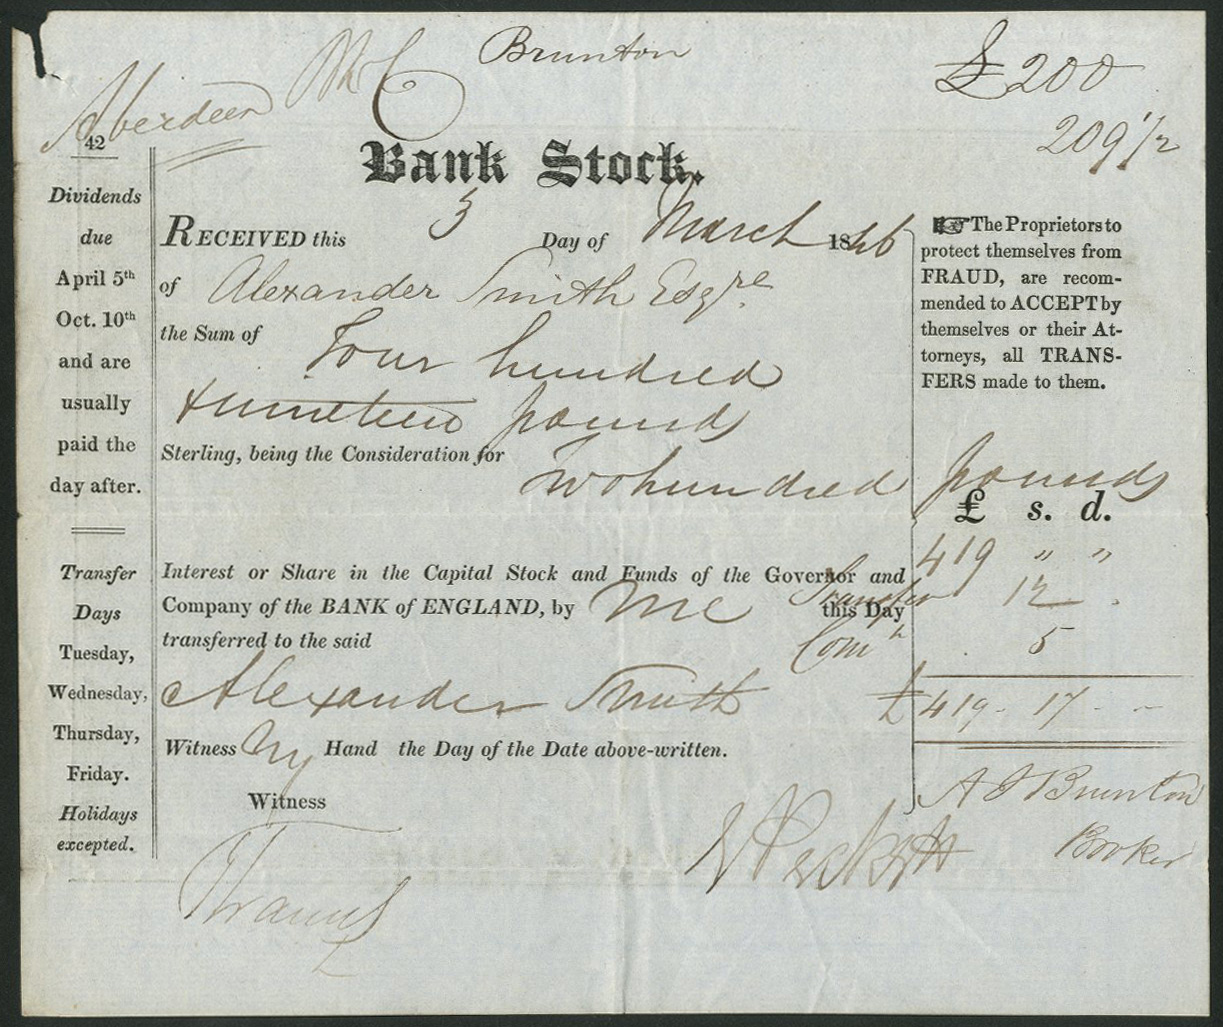 Brunton
£ 200
Aberdeen
209 1/2
42
Bank Stock.
Dividends
due
April 5th
Oct. 10th
and are
usually
paid the
day after.
Transfer
Days
Tuesday,
Wednesday,
Thursday,
Friday.
Holidays
excepted.
RECEIVED this 3 Day of March 1846
of Alexander Smith Esqre
the Sum of Four hundred
& nineteen pounds
Sterling, being the Consideration for
Two hundred pounds
Interest or Share in the Capital Stock and Funds of the Governor and
Company of the BANK of ENGLAND, by me this Day
transferred to the said
Alexander Smith
Witness my Hand the Day of the Date above-written.
Witness
The Proprietors to
protect themselves from
FRAUD, are recom-
mended to ACCEPT by
themselves or their At-
torneys, all TRANS-
FERS made to them.
£ s. d.
419 " "
Transfer 12 .
Comn 5
£ 419 - 17 - -
A J Brunton
Broker